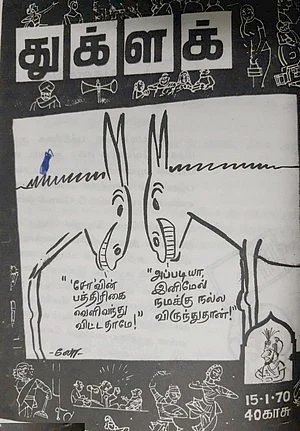 துக்ளக்
"'சோ'வின்
பத்திரிகை
வெளிவந்து
விட்டதாமே!"
"அப்படியா,
இனிமேல்
நமக்கு நல்ல
விருந்துதான்!"
15-1-70
40காசு